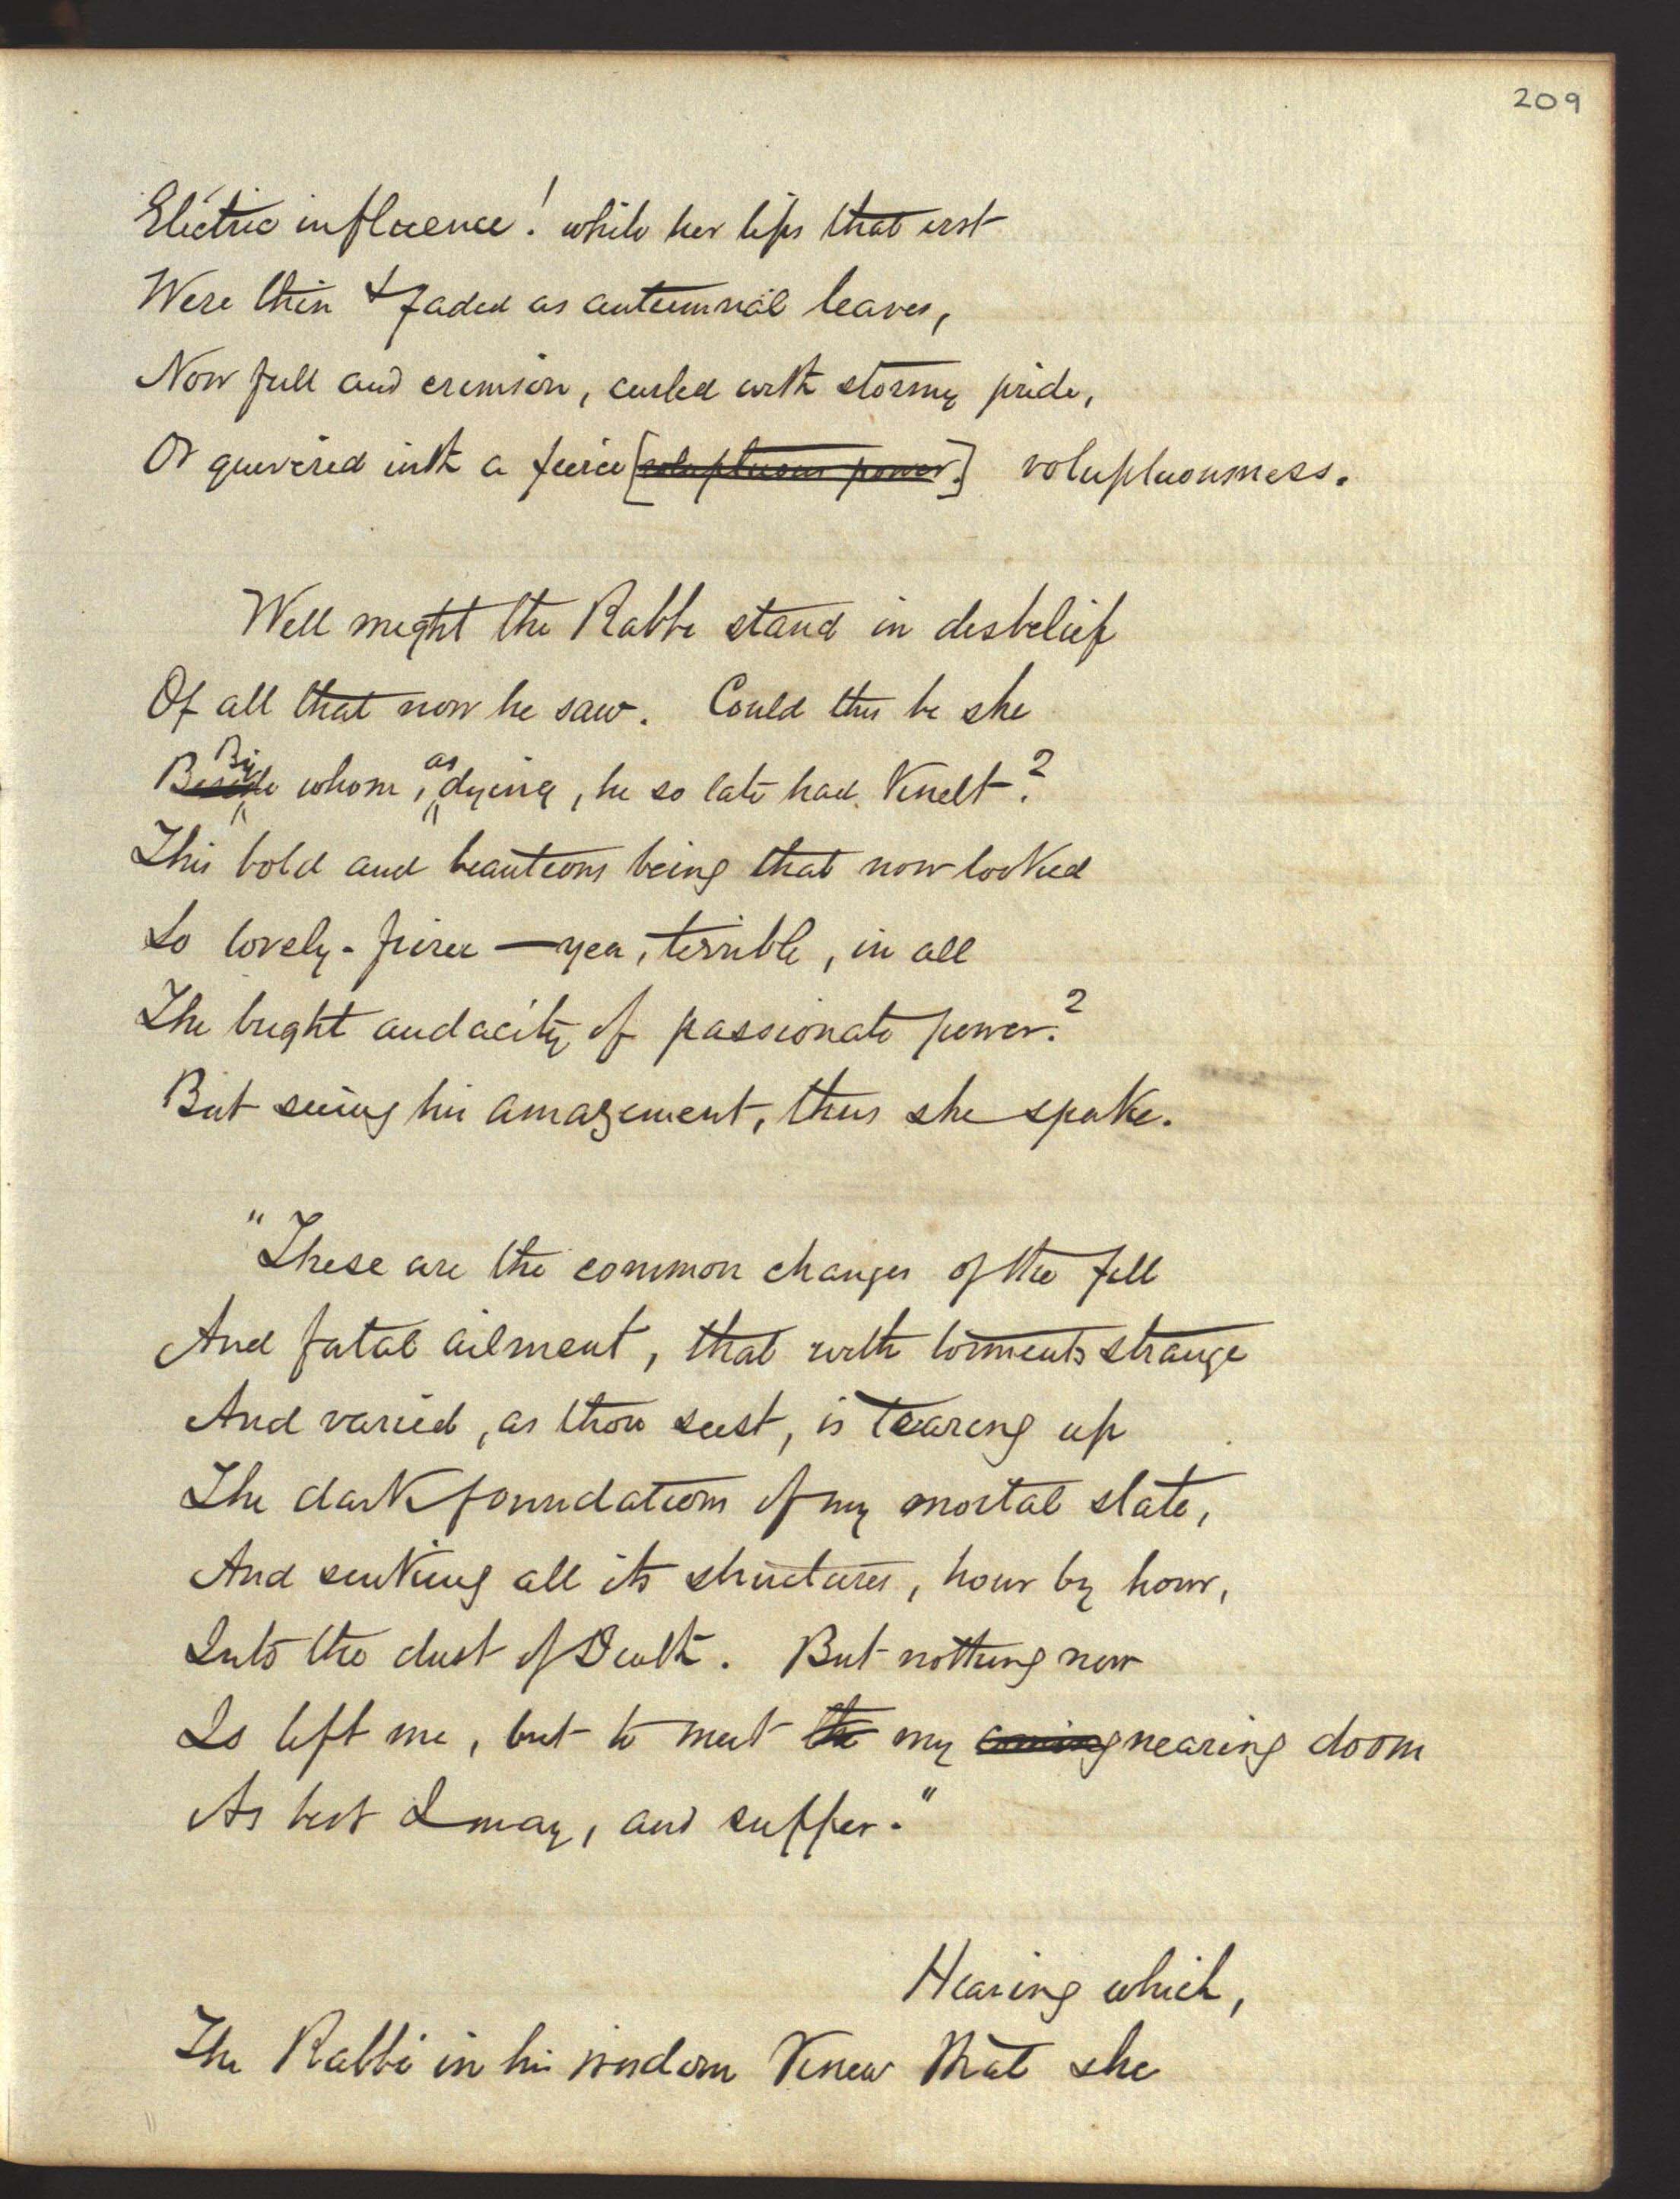 209
Electric influence! while her lips that erst
Were thin & faded as autumnal leaves,
Now full and crimson, curled with stormy pride,
Or quivered with a fierce [voluptuous power.] voluptuousness.
Well might the Rabbi stand in disbelief
Of all that now he saw. Could this be she
By as
Beside whom, dying, he so late had knelt?
This bold and beauteous being that now looked
So lovely-fierce — yea, terrible, in all
The bright audacity of passionate power?
But seeing his amazement, thus she spake.
"These are the common changes of the fell
And fatal ailment, that with torments strange
And varied, as thou seest, is tearing up
The dark foundations of my mortal state,
And sinking all its structures, hour by hour,
Into the dust of Death. But nothing now
Is left me, but to meet the my coming nearing doom
As best I may, and suffer."
Hearing which,
The Rabbi in his wisdom knew that she